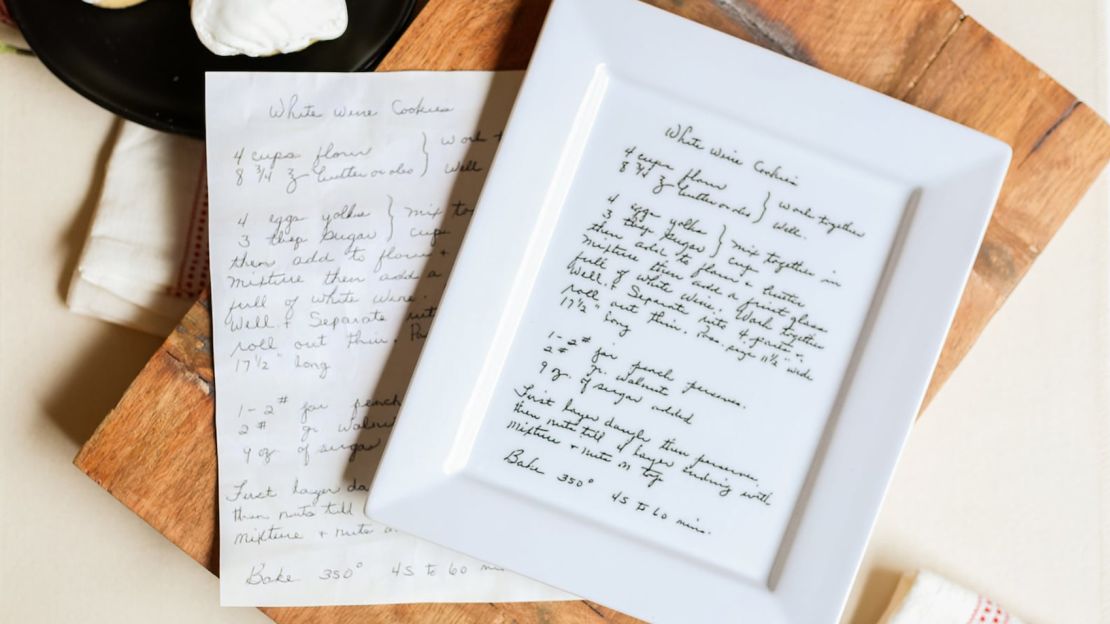 White Wine Cookies
4 cups flour } work +
8 3/4 z butter or oleo } well
4 eggs yolks } mix to
3 tbsp sugar } cup
then add to flour +
mixture then add a
full of white wine.
Well. + Separate into
roll out thin. Pa
17 1/2" long
1 - 2# jar peach
2# gr. walnut
9 oz. of sugar
First layer da
then nuts till
mixture + nuts o
Bake 350° 45 to 60 mi
White Wine Cookies
4 cups flour } work together
8 3/4 z butter or oleo } well.
4 eggs yolks } mix together in
3 tbsp sugar } cup
then add to flour + butter
mixture then add a fruit glass
full of white wine. Work together
Well. + Separate into 4 parts +
roll out thin. Pan size 11 1/2" wide
17 1/2" long
1 - 2# jar peach perserves.
2# gr. walnuts
9 oz. of sugar added
First layer dough then perserves,
then nuts till layer ending with
mixture + nuts on top
Bake 350° 45 to 60 mins.